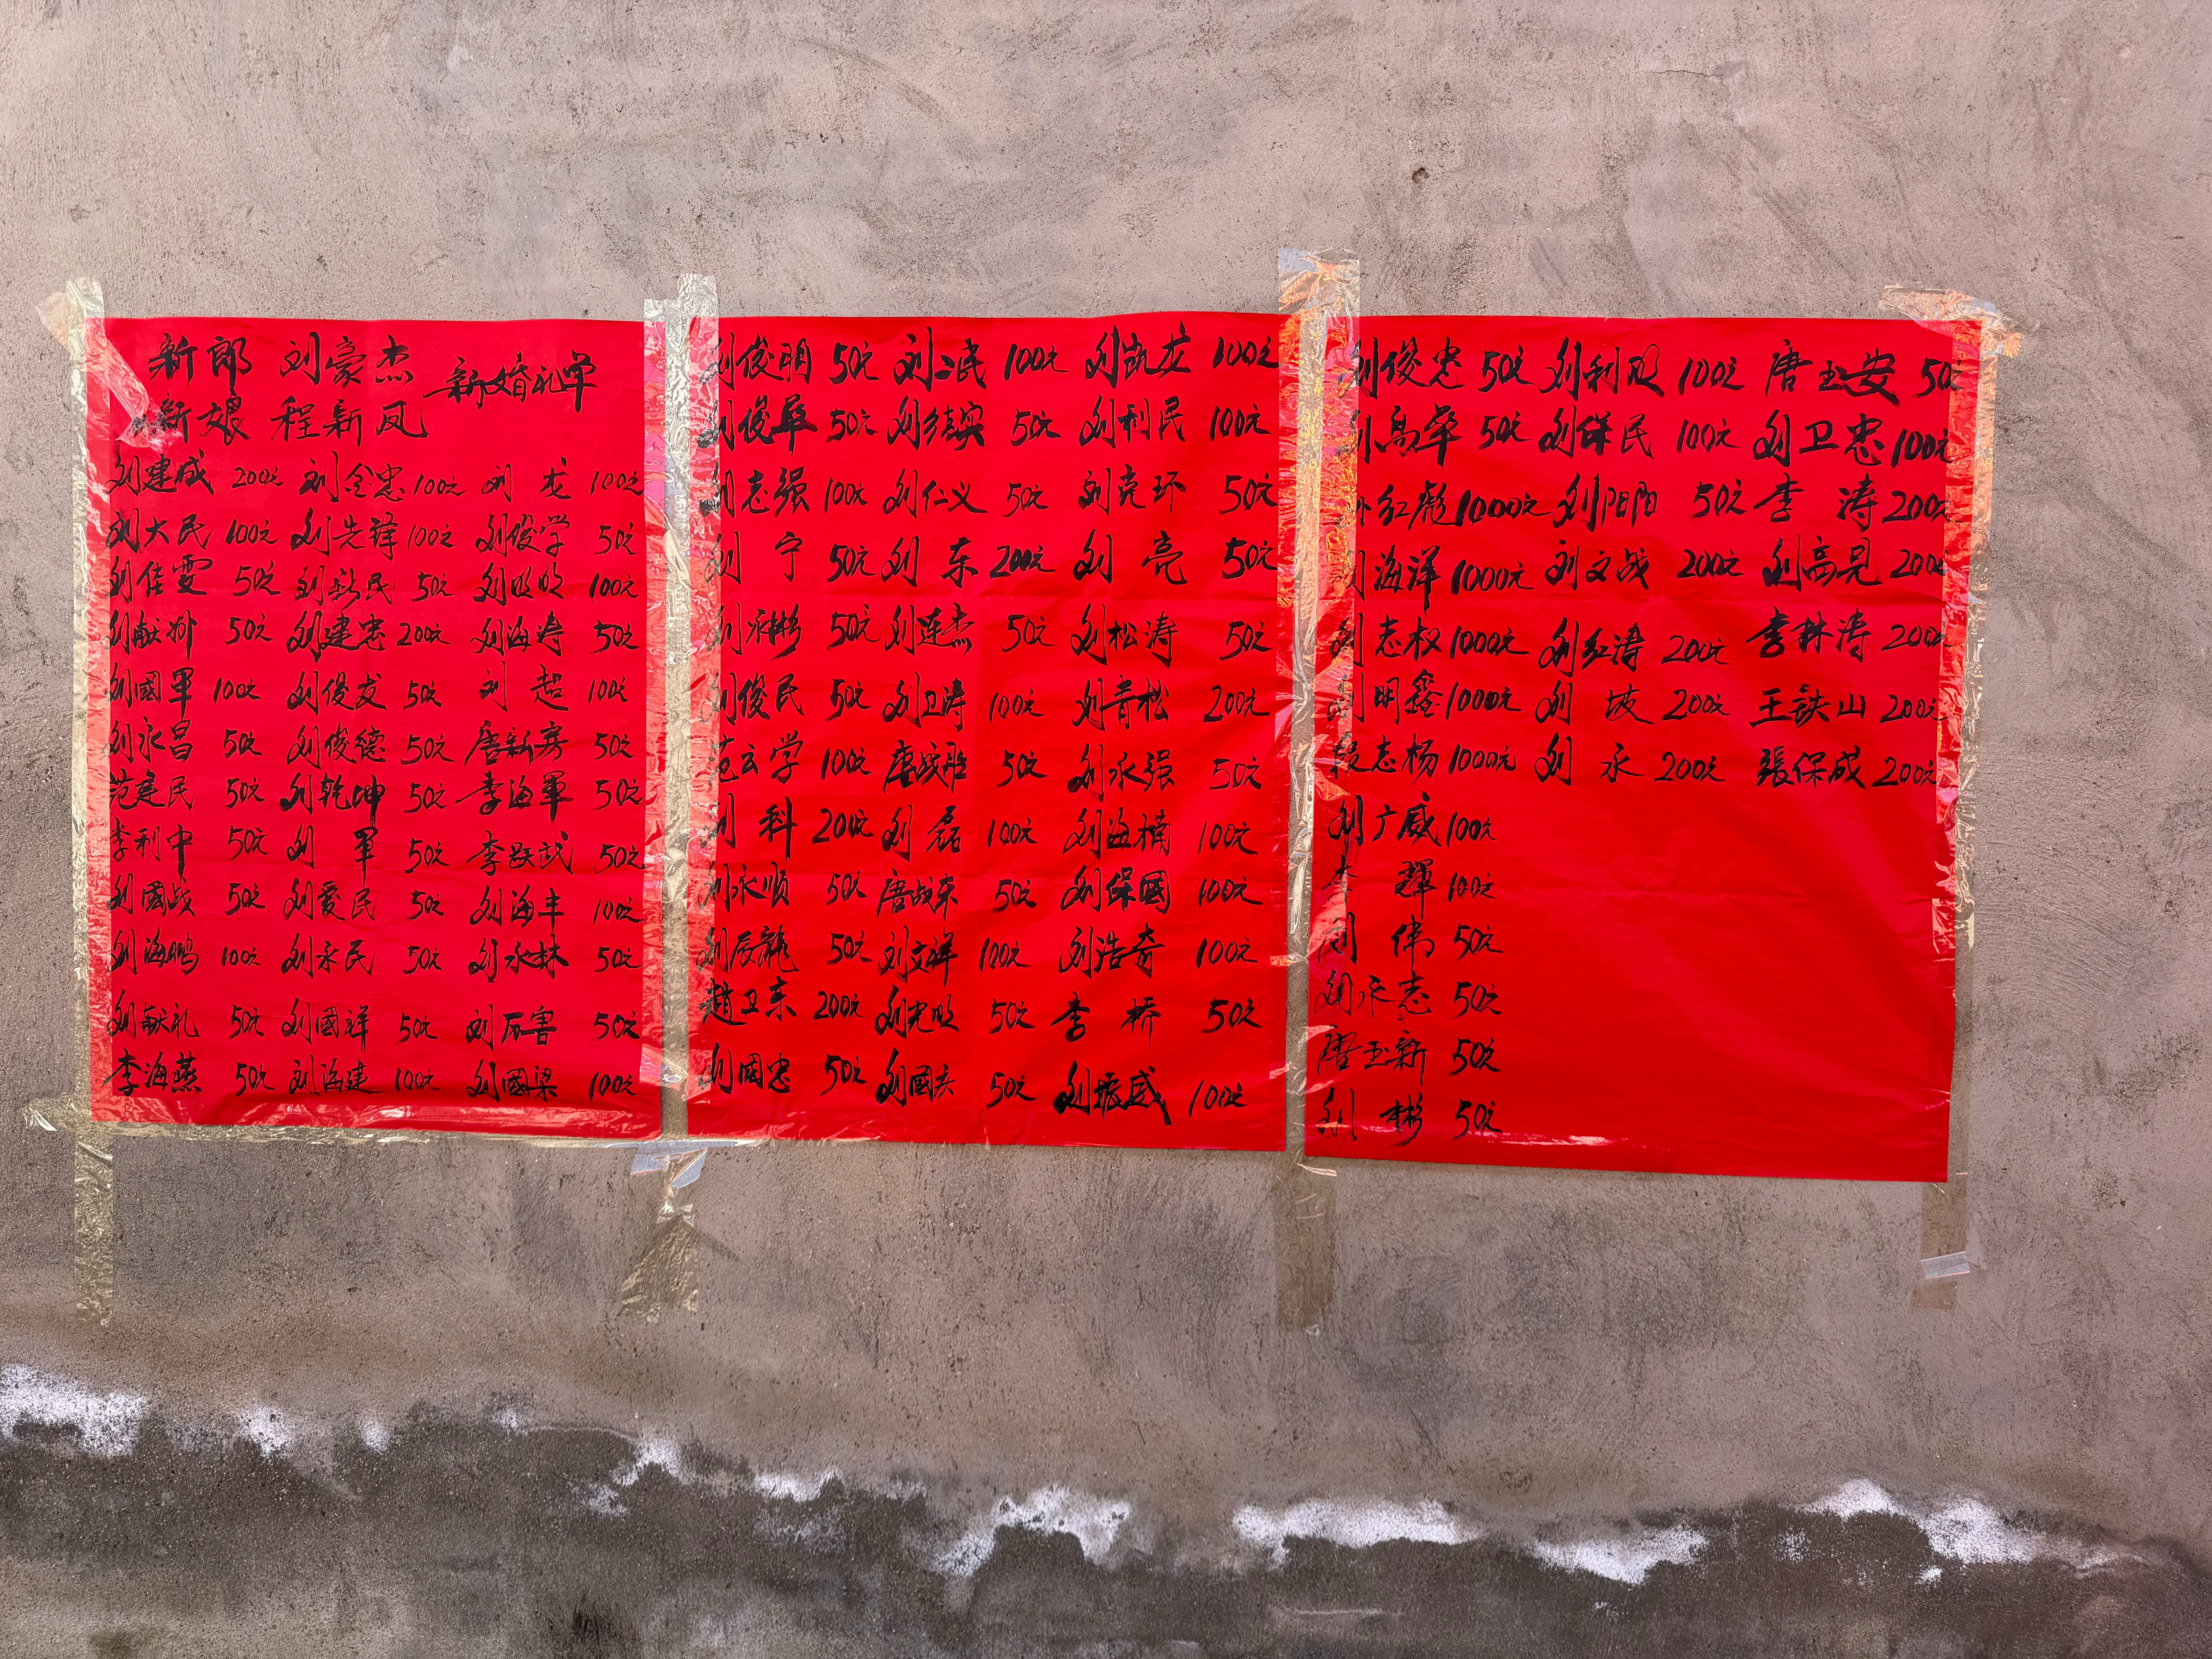 新郎 刘豪杰 新婚礼单
新娘 程新凤
刘建成 200元 刘金忠 100元 刘龙 100元
刘大民 100元 刘先锋 100元 刘俊学 50元
刘佳雯 50元 刘新民 50元 刘明明 100元
刘献州 50元 刘建忠 200元 刘海涛 50元
刘國軍 100元 刘俊友 50元 刘超 100元
刘永昌 50元 刘俊德 50元 唐新房 50元
范建民 50元 刘乾坤 50元 李海軍 50元
李利中 50元 刘軍 50元 李跃武 50元
刘國战 50元 刘爱民 50元 刘海丰 100元
刘海鹏 100元 刘永民 50元 刘永林 50元
刘献礼 50元 刘國祥 50元 刘 50元
李海燕 50元 刘海建 100元 刘國梁 100元
刘俊明 50元 刘二民 100元 刘凯龙 100元
刘俊華 50元 刘结实 50元 刘利民 100元
刘志强 100元 刘仁义 50元 刘克环 50元
刘宁 50元 刘东 200元 刘亮 50元
刘永彬 50元 刘连杰 50元 刘松涛 50元
刘俊民 50元 刘卫涛 100元 刘青松 200元
范云学 100元 唐战胜 50元 刘永强 50元
刘科 200元 刘磊 100元 刘海楠 100元
刘永顺 50元 唐战东 50元 刘保國 100元
刘辰龍 50元 刘文祥 100元 刘浩奇 100元
趙卫东 200元 刘光明 50元 李桥 50元
刘國忠 50元 刘國庆 50元 刘振威 100元
刘俊忠 50元 刘利 100元 唐玉安 50元
高华 50元 刘保民 100元 刘卫忠 100元
红彪 1000元 刘阳阳 50元 李涛 200元
刘海洋 1000元 刘文战 200元 刘高見 200元
刘志权 1000元 刘红涛 200元 李林涛 200元
刘明鑫 1000元 刘坡 200元 王铁山 200元
段志杨 1000元 刘永 200元 張保成 200元
刘广威 100元
李輝 100元
刘伟 50元
刘永志 50元
唐玉新 50元
刘彬 50元